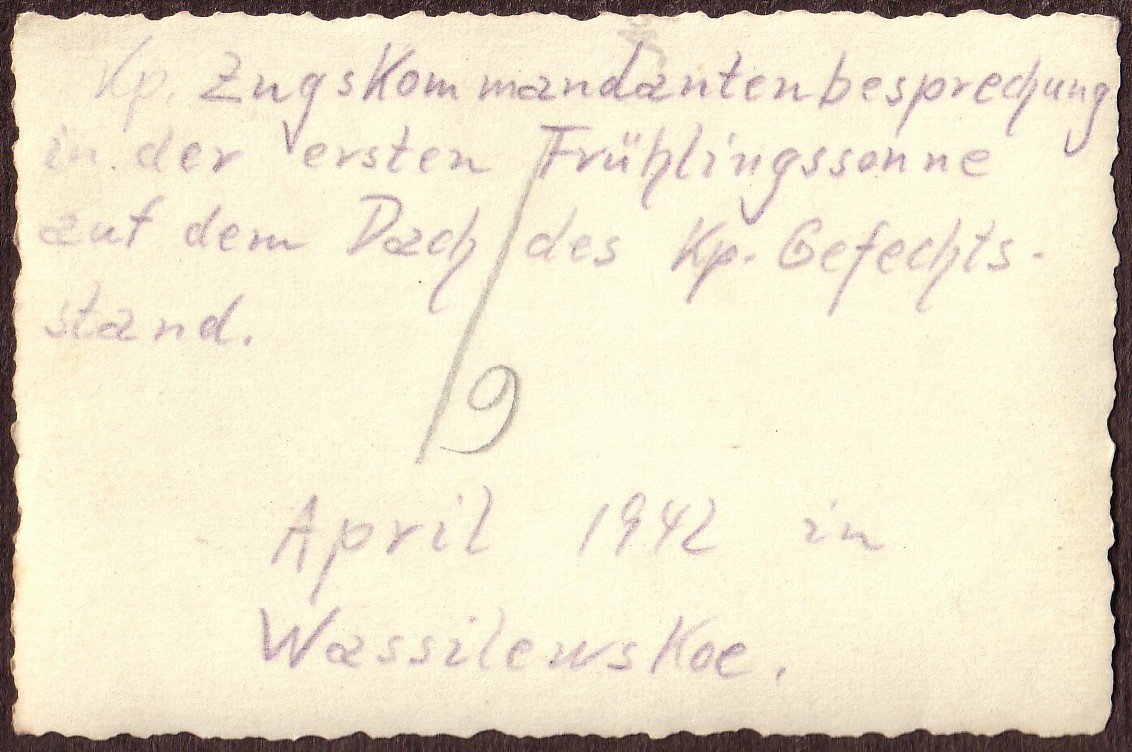 Kp. Zugskommandantenbesprechung
in der ersten Frühlingssonne
auf dem Dach des Kp. Gefechts-
stand.
/9
April 1942 in
Wassilewskoe.